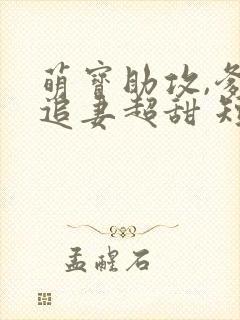 萌寶助攻,
追妻超甜
孟醒石